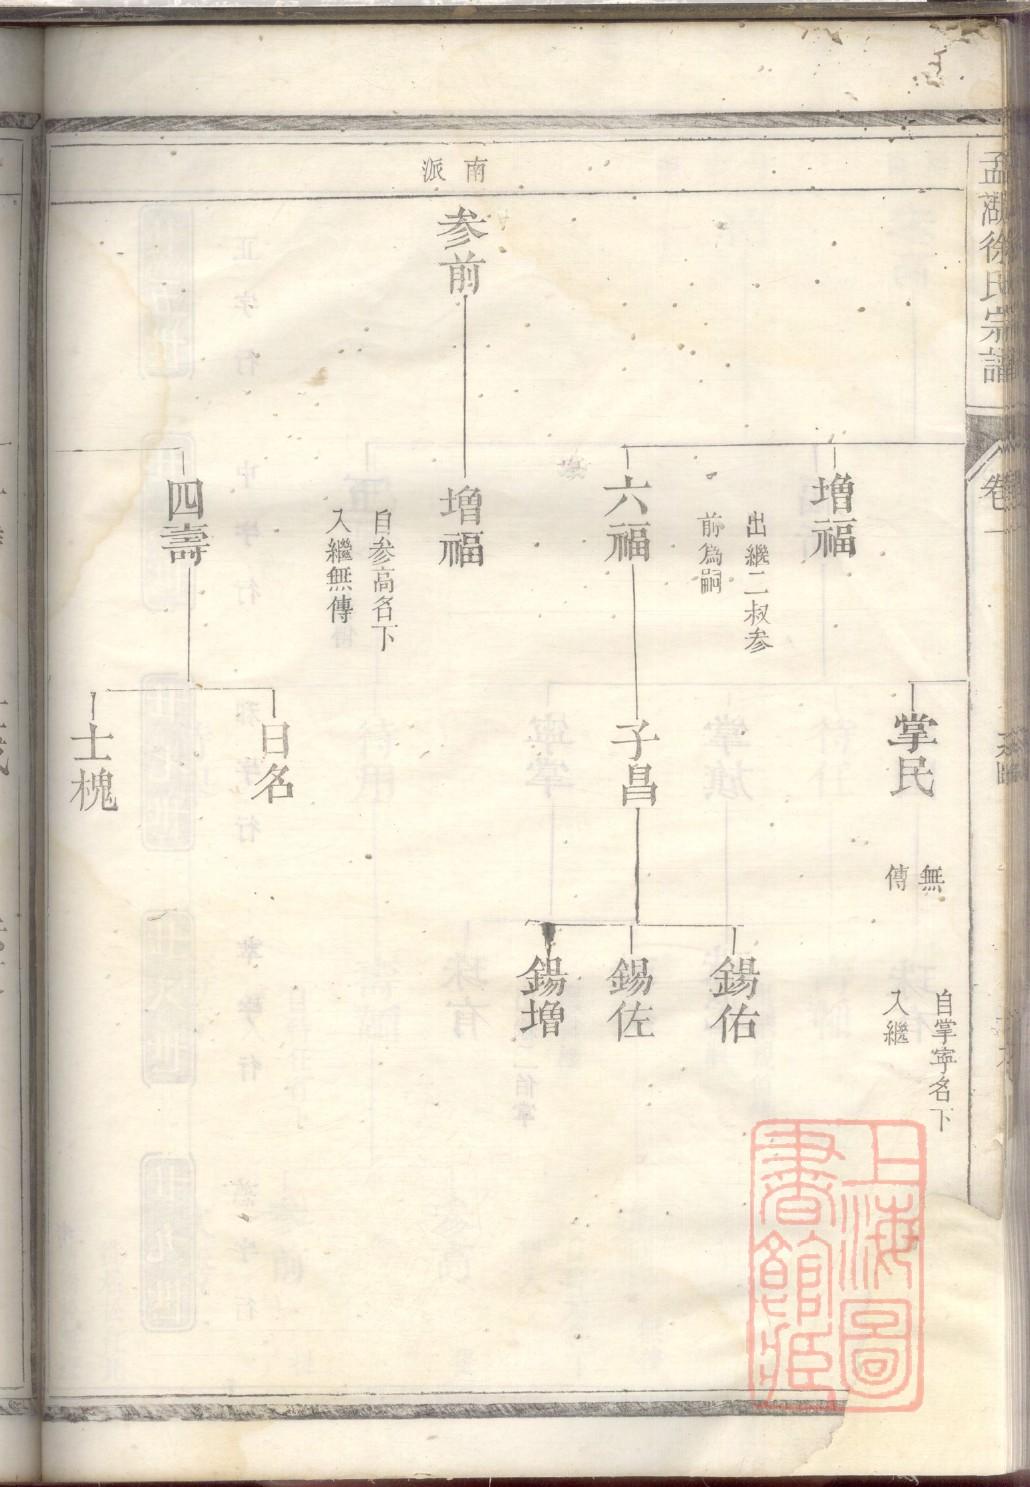 孟湖徐氏宗譜
卷一
南派
掌民
無傳
自掌寧名下
入繼
增福
出繼二叔参
前爲嗣
六福
子昌
錫佑
錫佐
錫增
参前
增福
自参高名下
入繼無傳
四壽
日名
士槐
上海圖
書館藏